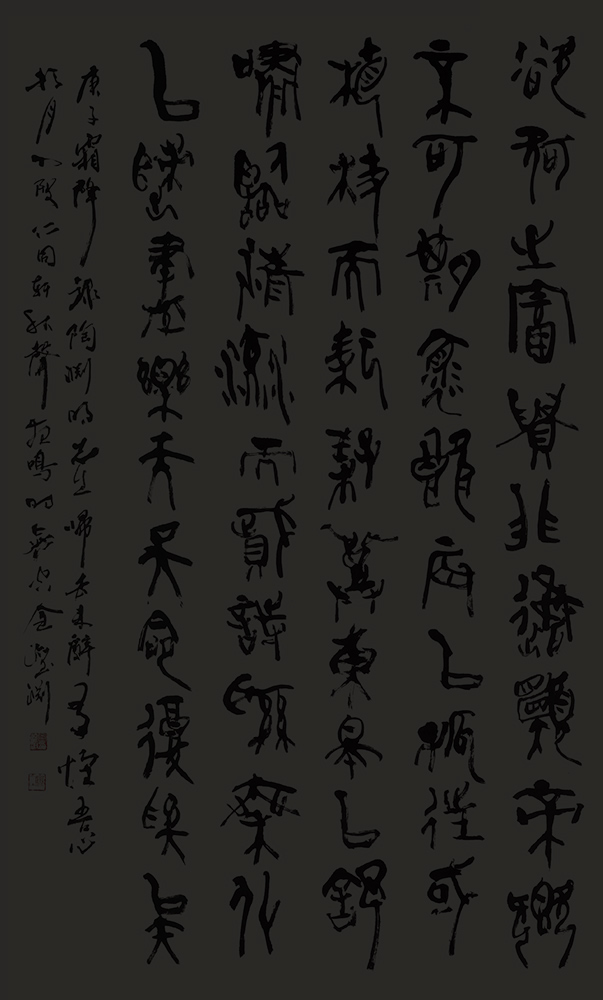 欲何之富貴非吾願帝鄉
不可期懷良辰以孤往或
植杖而耘耔登東皋以舒
嘯臨清流而賦詩聊乘化
以歸盡樂夫天命復奚疑
庚子霜降錄陶淵明先生歸去來辭吾心
於月仁同軒秋聲鳴時金澄渊